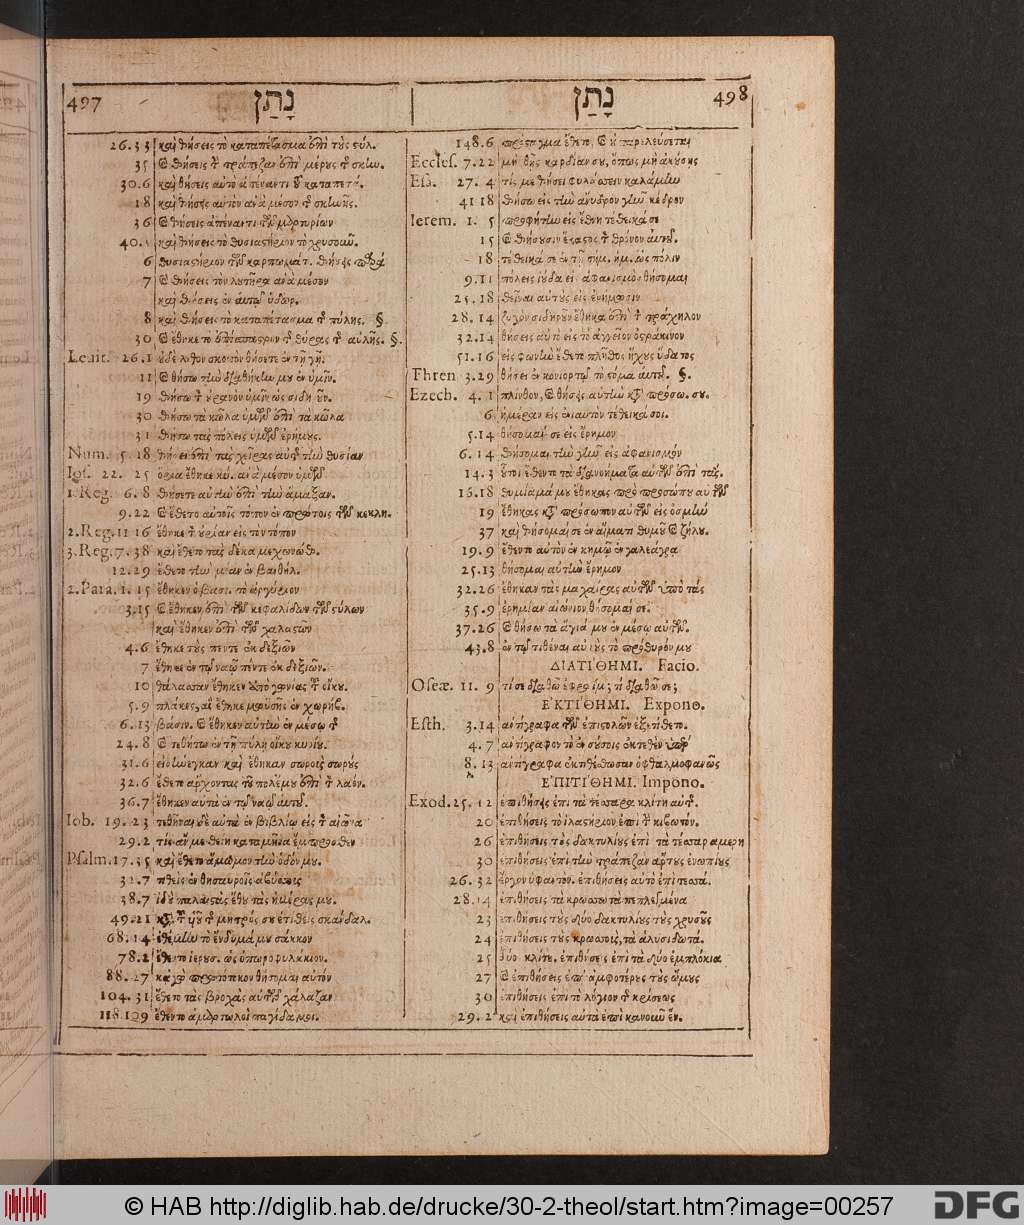 497 נָתַן
26.33 καὶ θήσεις τὸ καταπέτασμα ἐπὶ τοὺς στύλ.
35 καὶ θήσεις τ τράπεζαν ἐπὶ μέρους τ σκην.
30.6 καὶ θήσεις αὐτὸ ἀπέναντι τοῦ καταπετ.
18 καὶ θήσεις αὐτὸν ἀνὰ μέσον τ σκηνῆς.
36 καὶ θήσεις ἀπέναντι τῶν μαρτυρίων
40. καὶ θήσεις τὸ θυσιαστήριον τὸ χρυσοῦν.
6 θυσιαστήριον τῶν καρπωμάτ. θήσεις παρὰ
7 καὶ θήσεις τὸν λουτῆρα ἀνὰ μέσον
καὶ θήσεις ἐν αὐτῷ ὕδωρ.
8 καὶ θήσεις τὸ καταπέτασμα τ πύλης. §.
30 καὶ ἔθηκε τὸ ἐπίσπαστρον τ θύρας τ αὐλῆς. §.
Levit. 26.1 οὐδὲ λίθον σκοπὸν θήσετε ἐν τῇ γῇ.
11 καὶ θήσω τὴν διαθήκην μου ἐν ὑμῖν.
19 θήσω τ οὐρανὸν ὑμῖν ὡς σιδηροῦν.
30 θήσω τὰ κῶλα ὑμῶν ἐπὶ τὰ κῶλα
31 θήσω τὰς πόλεις ὑμῶν ἐρήμους.
Num. 5.18 θήσει ἐπὶ τὰς χεῖρας αὐτ τὴν θυσίαν
Ios. 22. 25 ὅρια ἔθηκε κύ. ἀνὰ μέσον ὑμῶν
1.Reg. 6.8 θήσετε αὐτὴν ἐπὶ τὴν ἅμαξαν.
9.22 καὶ ἔθετο αὐτοῖς τόπον ἐν πρώτοις τῶν κεκλη.
2.Reg. 11 16 ἔθηκε τ οὐρίαν εἰς τὸν τόπον
3.Reg. 7.38 καὶ ἔθετο τὰς δέκα μεχωνώθ.
12.29 ἔθετο τὴν μίαν ἐν βαιθήλ.
2.Para. 1.15 ἔθηκεν ὁ βασι. τὸ ἀργύριον
3.15 καὶ ἔθηκεν ἐπὶ τῶν κεφαλίδων τῶν στύλων
καὶ ἔθηκεν ἐπὶ τῶν χαλαστῶν
4.6 ἔθηκε τοὺς πέντε ἐκ δεξιῶν
7 ἔθηκε ἐν τῷ ναῷ πέντε ἐκ δεξιῶν.
10 θάλασσαν ἔθηκεν ἀπὸ γωνίας τ οἴκου.
5.9 πλάκες, αἳ ἔθηκε μωϋσῆς ἐν χωρήβ.
6.13 βάσιν. καὶ ἔθηκεν αὐτὴν ἐν μέσῳ τ
24.8 καὶ τεθήτω ἐν τῇ πύλῃ οἴκου κυρίου.
31.6 εἰσήνεγκαν καὶ ἔθηκαν σωροὺς σωροὺς
32.6 ἔθετο ἄρχοντας τοῦ πολέμου ἐπὶ τ λαόν.
36.7 ἔθηκεν αὐτὰ ἐν τῷ ναῷ αὐτοῦ.
Iob. 19.23 τεθῆναι δὲ αὐτὰ ἐν βιβλίῳ εἰς τ αἰῶνα
29.2 τίς ἄν με θείη κατὰ μῆνα ἔμπροσθεν
Psalm. 17.35 καὶ ἔθετο ἄμωμον τὴν ὁδόν μου.
32.7 τιθεὶς ἐν θησαυροῖς ἀβύσσους
38.7 ἰδοὺ παλαιστὰς ἔθου τὰς ἡμέρας μου.
49.21 κατὰ τ υἱοῦ τ μητρός σου ἐτίθεις σκάνδαλ.
68.14 ἐθέμην τὸ ἔνδυμά μου σάκκον
78.2 ἔθεντο ἱερουσ. ὡς ὀπωροφυλάκιον.
88.27 κἀγὼ πρωτότοκον θήσομαι αὐτόν
104.31 ἔθετο τὰς βροχὰς αὐτῶν χάλαζαν
118.109 ἔθεντο ἁμαρτωλοὶ παγίδα μοι.
נָתַן 498
148.6 πρόσταγμα ἔθετο, καὶ οὐ παρελεύσεται
Eccles. 7.22 μὴ θῇς καρδίαν σου, ὅπως μὴ ἀκούσῃς
Es. 27.4 τίς με θήσει φυλάσσειν καλάμην
41 18 θήσω εἰς τὴν ἄνυδρον γῆν κέδρον
Ierem. 1.5 προφήτην εἰς ἔθνη τέθεικά σε
15 καὶ θήσουσιν ἕκαστος τ θρόνον αὐτοῦ.
18 τέθεικά σε ἐν τῇ σήμ. ἡμ. ὡς πόλιν
9.11 πόλεις ἰούδα εἰς ἀφανισμὸν θήσομαι
25.18 θεῖναι αὐτοὺς εἰς ἐρήμωσιν
28.14 ζυγὸν σιδηροῦν ἔθηκα ἐπὶ τ τράχηλον
32.14 θήσεις αὐτὸ εἰς τὸ ἀγγεῖον ὀστράκινον
51.16 εἰς φωνὴν ἔθετο πλῆθος ἤχους ὕδατος
Thren 3.29 θήσει ἐν κονιορτῷ τὸ στόμα αὐτοῦ. §.
Ezech. 4.1 πλίνθον, καὶ θήσεις αὐτὴν κατὰ πρόσω. σου.
6 ἡμέραν εἰς ἐνιαυτὸν τέθεικά σοι.
5.14 θήσομαί σε εἰς ἔρημον
6.14 θήσομαι τὴν γῆν εἰς ἀφανισμόν
14.3 οὗτοι ἔθεντο τὰ διανοήματα αὐτῶν ἐπὶ τάς.
16.18 θυμίαμά μου ἔθηκας πρὸ προσώπου αὐτῶν
19 ἔθηκας κατὰ πρόσωπον αὐτῶν εἰς ὀσμὴν
37 καὶ θήσομαί σε ἐν αἵματι θυμοῦ καὶ ζήλου.
19.9 ἔθεντο αὐτὸν ἐν κημῷ ἐν γαλεάγρα
25.13 θήσομαι αὐτὴν ἔρημον
32.26 ἔθηκαν τὰς μαχαίρας αὐτῶν ὑπὸ τάς
35.9 ἐρημίαν αἰώνιον θήσομαί σε.
37.26 καὶ θήσω τὰ ἅγιά μου ἐν μέσῳ αὐτῶν.
43.8 ἐν τῷ τιθέναι αὐτοὺς τὸ πρόθυρόν μου
ΔΙΑΤΙΘΗΜΙ. Facio.
Oseæ. 11. 9 τί σε διαθῶ ἐφραΐμ; τί διαθῶ σε;
ΕΚΤΙΘΗΜΙ. Expono.
Esth. 3.14 ἀντίγραφα τῶν ἐπιστολῶν ἐξετίθετο.
4.7 ἀντίγραφον τὸ ἐν σούσοις ἐκτεθὲν ὑπὲρ
8.13 ἀντίγραφα ἐκτιθέσθωσαν ὀφθαλμοφανῶς
ΕΠΙΤΙΘΗΜΙ. Impono.
Exod. 25. 12 ἐπιθήσεις ἐπὶ τὰ τέσσαρα κλίτη αὐτ.
20 ἐπιθήσεις τὸ ἱλαστήριον ἐπὶ τ κιβωτόν.
26 ἐπιθήσεις τοὺς δακτυλίους ἐπὶ τὰ τέσσαρα μέρη
30 ἐπιθήσεις ἐπὶ τὴν τράπεζαν ἄρτους ἐνωπίους
26.32 ἔργον ὑφαντὸν. ἐπιθήσεις αὐτὸ ἐπὶ τεσσά.
28.14 ἐπιθήσεις τὰ κρωσσωτὰ πεπλεγμένα
23 ἐπιθήσεις τοὺς δύο δακτυλίους τοὺς χρυσοῦς
24 ἐπιθήσεις τοὺς κρωσσοὺς, τὰ ἁλυσιδωτά.
25 δύο κλίτη. ἐπιθήσεις ἐπὶ τὰ δύο ἐμπλόκια
27 καὶ ἐπιθήσεις ἐπ' ἀμφοτέρους τοὺς ὤμους
30 ἐπιθήσεις ἐπὶ τὸ λόγιον τ κρίσεως
29.2 καὶ ἐπιθήσεις αὐτὰ ἐπὶ κανοῦν ἕν.
© HAB http://diglib.hab.de/drucke/30-2-theol/start.htm?image=00257 DFG